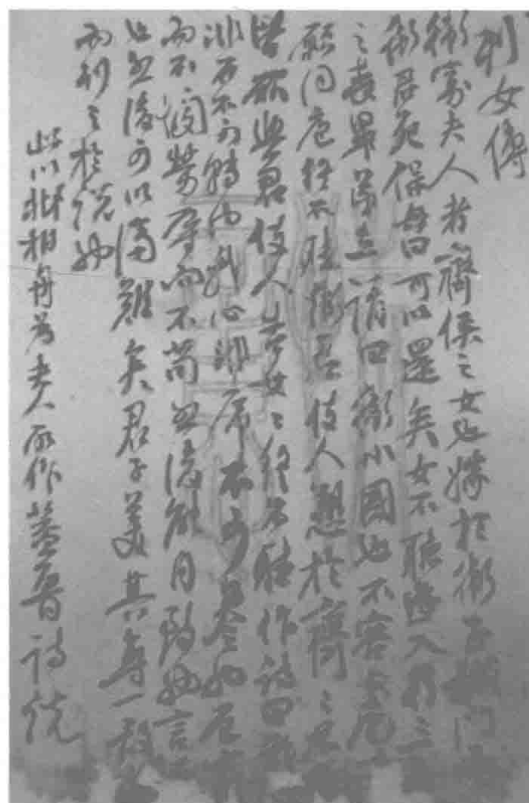 列女傳
衛寡夫人者齊侯之女也嫁於衛至城門
衛君死保母曰可以還矣女不聽遂入行三
之喪畢弟立請曰衛小國也不容二庖
願同庖終不聽衛君使人愬於齊々兄
皆欲與君使人告女々終不聽作詩曰我
非石不可轉也我心非席不可卷也厄
而不閔勞辱而不苟然後能自致也言
也然後可以濟難矣君子美其貞一故
而列之於詩也
此以邶柏舟為夫人所作蓋魯詩說